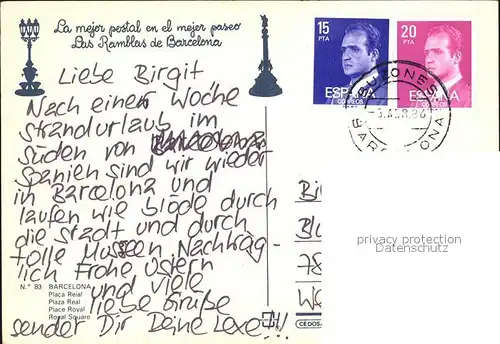 La mejor postal en el mejor paseo
Las Ramblas de Barcelona
15
PTA
ESPAÑA
CORREOS
20
PTA
ESPAÑA
BUZONES
BARCELONA
Liebe Birgit
Nach einer Woche
Strandurlaub im
Süden von
Spanien sind wir wieder
in Barcelona und
laufen wie blöde durch
die Stadt und durch
tolle Museen. Nachträg-
lich Frohe Ostern
und viele
liebe Grüße
sendet Dir Deine
N.° 83 BARCELONA
Plaça Reial
Plaza Real
Place Royal
Royal Square
Bi
78
privacy protection
VDMedien24.de